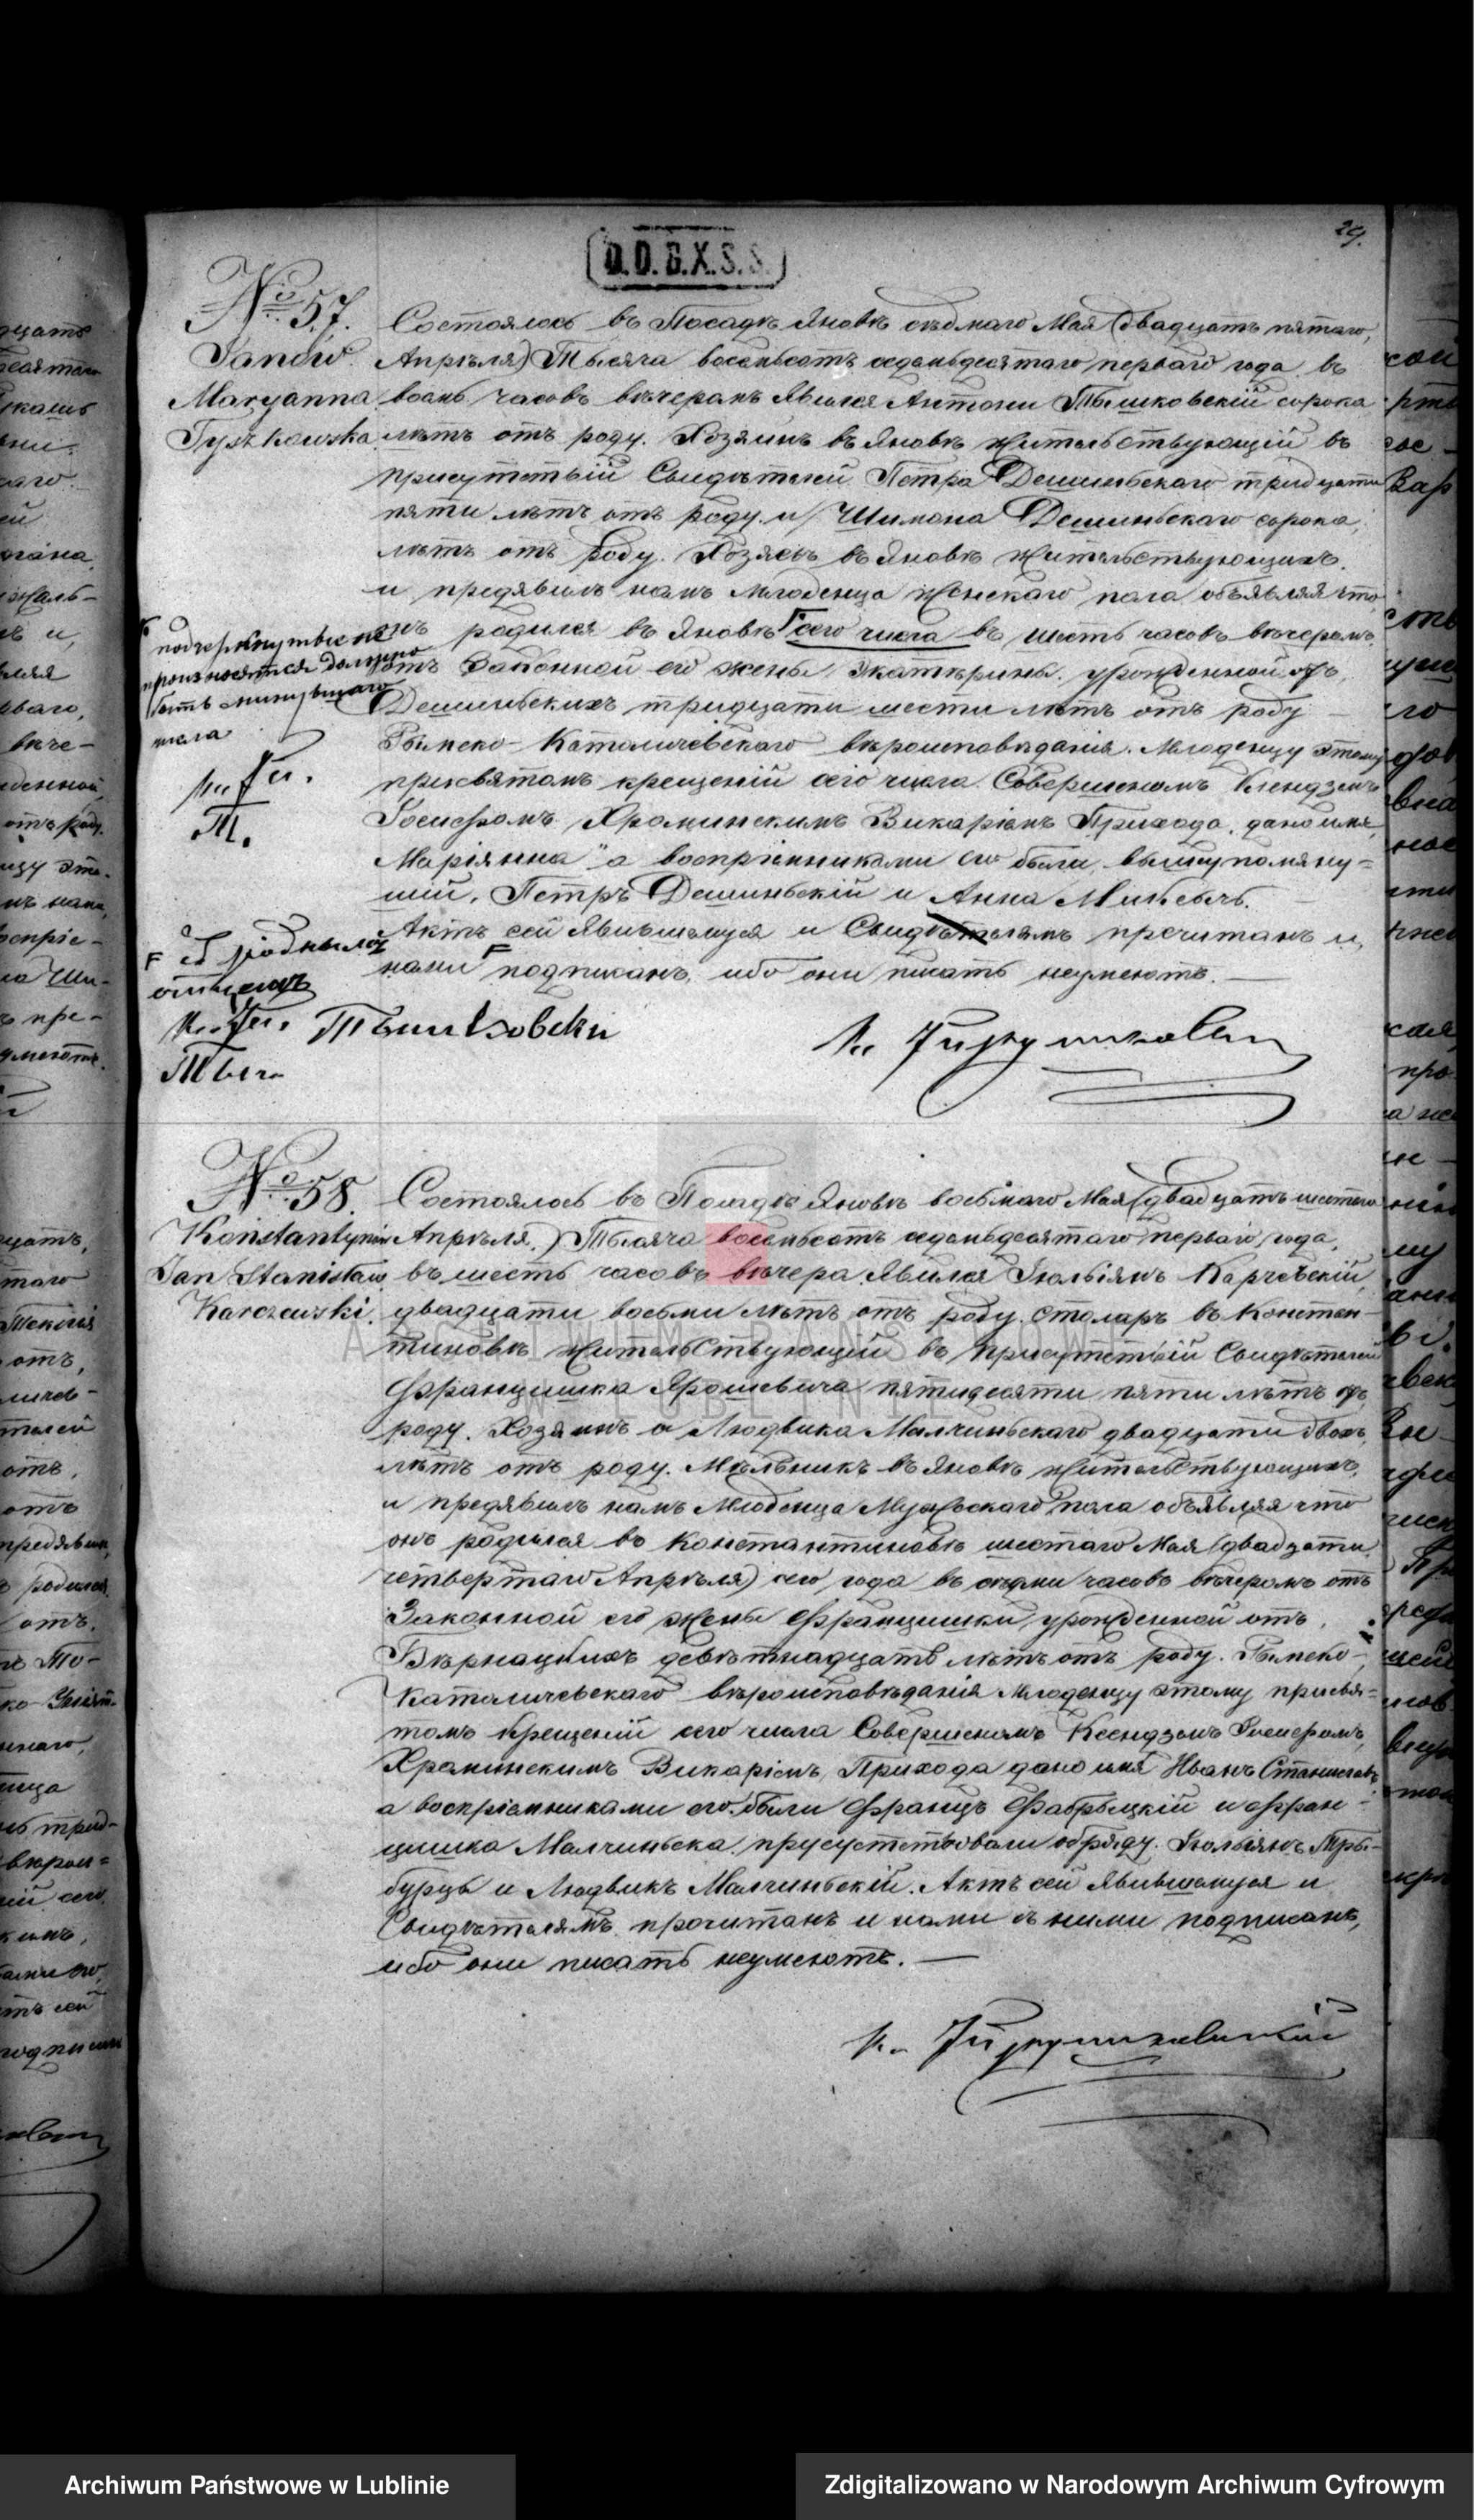 29.
D.D.B.X.S.S.
№ 57.
Janów
Maryanna
Tyszkowska
Состоялось въ Посадѣ Яновѣ седмаго Мая (двадцать пятаго,
Апрѣля) Тысяча восемьсотъ седемьдесятаго перваго года въ
восмь часовъ вѣчеромъ Явился Антони Тышковскій сорока
лѣтъ отъ роду. Хозяинъ въ Яновѣ жительствующій въ
присутствіи Свидѣтелей Петра Дешиньскаго тридцати
пяти лѣтъ отъ роду и Шимона Дешиньскаго сорока,
лѣтъ отъ роду. Хозяевъ въ Яновѣ жительствующихъ.
и предявилъ намъ младенца женскаго пола объявляя что
онъ родился въ Яновѣ сего числа въ шесть часовъ вѣчеромъ
отъ Законной его жены Экатѣрины урожденной отъ
Дешиньскихъ тридцати шести лѣтъ отъ роду —
Римско-Католичевскаго вѣроисповѣданія. Младенцу этому
присвятомъ крещеніи сего числа Совершеномъ Ксендзомъ
Іосифомъ Хроминскимъ Викаріемъ Прихода, дано имя
Маріянна" а воспріемниками его были, вышеупомяну-
тий, Петръ Дешиньскій и Анна Мисевичъ.
Актъ сей Явившемуся и Свидѣтелямъ прочитанъ и,
нами подписанъ, ибо они писать неумеютъ. —
подчеркнутые не
произносятся должно
быть минувшаго
числа
Т.
F съ роднымъ
отцемъ
Тышковски
№ 58.
Konstantynów
Jan Stanisław
Karczewski.
Состоялось въ Посадѣ Яновѣ восьмаго Мая (двадцать шестаго
Апрѣля.) Тысяча восемьсотъ седемьдесятаго перваго года,
въ шесть часовъ вѣчера Явился Іюльіянъ Карчевскій,
двадцати восьми лѣтъ отъ роду. столяръ въ Констан-
тиновѣ жительствующій въ присутствіи Свидѣтелей
Францишка Ярошевича пятидесяти пяти лѣтъ отъ
роду. Хозяинъ и Людвика Малчиньскаго двадцати двохъ,
лѣтъ отъ роду. Мѣльникъ въ Яновѣ жительствующихъ,
и предявилъ намъ Младенца Мужескаго пола объявляя что
онъ родился въ Константиновѣ шестаго Мая (двадцати
четвертаго Апрѣля) сего года въ седми часовъ вѣчеромъ отъ
Законной его жены Францишки, урожденной отъ
Вѣрнацкихъ девѣтнадцать лѣтъ отъ роду. Римско-
Католичевскаго вѣроисповѣданія Младенцу этому присвя-
томъ крещеніи сего числа Совершеномъ Ксендзомъ Іосифомъ,
Хроминскимъ Викаріемъ Прихода дано имя Иванъ Станиславъ
а воспріемниками его были Францъ Фабрыцкій и Фран-
цишка Малчиньска, присутствовали обряду. Іюльіянъ Тры-
бурць и Людвикъ Малчиньскій. Актъ сей Явившемуся и
Свидѣтелямъ прочитанъ и нами съ ними подписанъ,
ибо они писать неумеютъ. —
ARCHIWUM PAŃSTWOWE
W LUBLINIE
Archiwum Państwowe w Lublinie
Zdigitalizowano w Narodowym Archiwum Cyfrowym